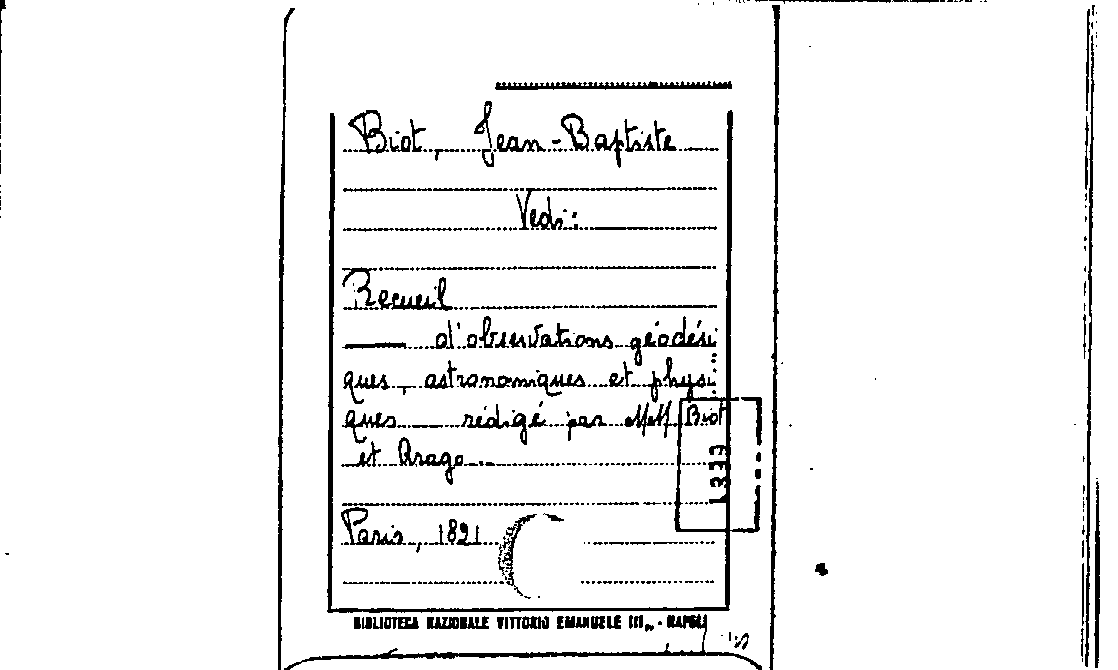 Biot, Jean-Baptiste
Vedi:
Recueil
d'observations géodési
ques, astronomiques et physi
ques rédigé par MM Biot
et Arago...
1333
Paris, 1821
BIBLIOTECA NAZIONALE VITTORIO EMANUELE III,, - NAPOLI